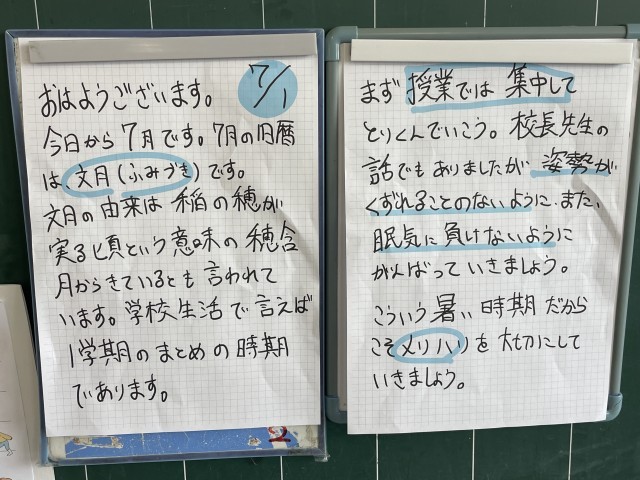 おはようございます。 7/1
今日から7月です。7月の旧暦
は、文月(ふみづき)です。
文月の由来は稲の穂が
実る頃という意味の穂含
月からきているとも言われて
います。学校生活で言えば
1学期のまとめの時期
であります。
2
まず授業では集中して
とりくんでいこう。校長先生の
話でもありましたが姿勢が
くずれることのないように.また、
眠気に負けないように
がんばっていきましょう。
こういう暑い時期だから
こそメリハリを大切にして
いきましょう。